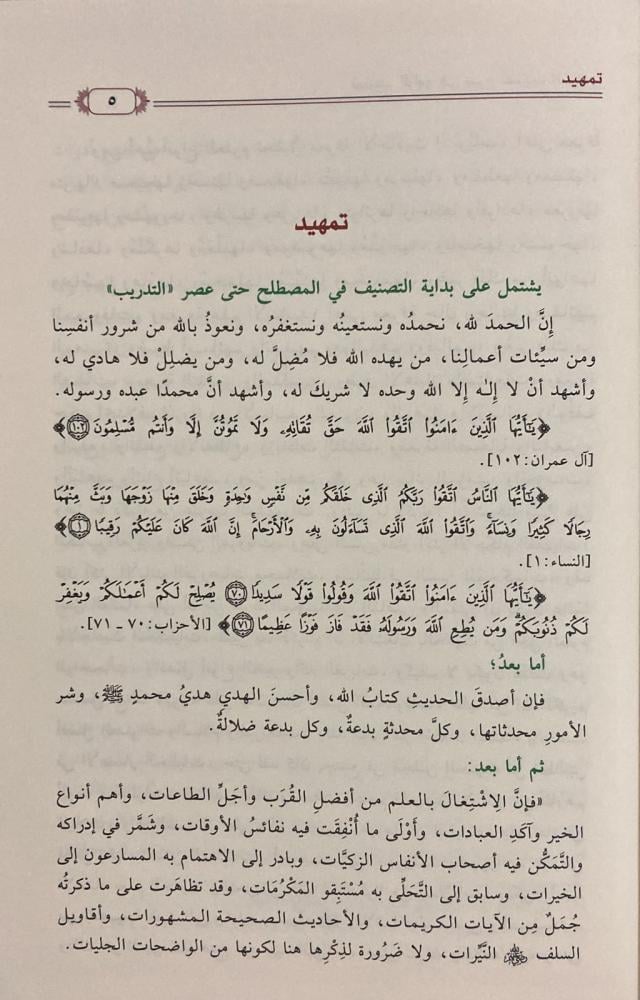 تمهيد
٥
تمهيد
يشتمل على بداية التصنيف في المصطلح حتى عصر «التدريب»
إنَّ الحمدَ لله، نحمدُه ونستعينُه ونستغفرُه، ونعوذُ بالله من شرور أنفسِنا
ومن سيِّئات أعمالِنا، من يهده الله فلا مُضِلَّ له، ومن يضلِلْ فلا هادي له،
وأشهد أنْ لا إلـٰه إلا الله وحده لا شريكَ له، وأشهد أنَّ محمدًا عبده ورسوله.
﴿يَٰٓأَيُّهَا ٱلَّذِينَ ءَامَنُوا۟ ٱتَّقُوا۟ ٱللَّهَ حَقَّ تُقَاتِهِۦ وَلَا تَمُوتُنَّ إِلَّا وَأَنتُم مُّسْلِمُونَ ١٠٢﴾
[آل عمران: ١٠٢].
﴿يَٰٓأَيُّهَا ٱلنَّاسُ ٱتَّقُوا۟ رَبَّكُمُ ٱلَّذِى خَلَقَكُم مِّن نَّفْسٍ وَٰحِدَةٍ وَخَلَقَ مِنْهَا زَوْجَهَا وَبَثَّ مِنْهُمَا
رِجَالًا كَثِيرًا وَنِسَآءً ۚ وَٱتَّقُوا۟ ٱللَّهَ ٱلَّذِى تَسَآءَلُونَ بِهِۦ وَٱلْأَرْحَامَ ۚ إِنَّ ٱللَّهَ كَانَ عَلَيْكُمْ رَقِيبًا ١﴾
[النساء: ١].
﴿يَٰٓأَيُّهَا ٱلَّذِينَ ءَامَنُوا۟ ٱتَّقُوا۟ ٱللَّهَ وَقُولُوا۟ قَوْلًا سَدِيدًا ٧٠ يُصْلِحْ لَكُمْ أَعْمَٰلَكُمْ وَيَغْفِرْ
لَكُمْ ذُنُوبَكُمْ ۗ وَمَن يُطِعِ ٱللَّهَ وَرَسُولَهُۥ فَقَدْ فَازَ فَوْزًا عَظِيمًا ٧١﴾ [الأحزاب: ٧٠ ـ ٧١].
أما بعدُ؛
فإن أصدقَ الحديثِ كتابُ الله، وأحسنَ الهديِ هديُ محمدٍ ﷺ، وشر
الأمورِ محدثاتها، وكلَّ محدثةٍ بدعةٌ، وكل بدعة ضلالةٌ.
ثم أما بعد:
«فإنَّ الاِشْتِغالَ بالعلم من أفضلِ القُرَب وأجَلِّ الطاعات، وأهم أنواع
الخير وآكَدِ العبادات، وأَوْلَى ما أُنْفِقَت فيه نفائسُ الأوقات، وشَمَّر في إدراكه
والتَّمَكُّن فيه أصحاب الأنفاس الزكيَّات، وبادر إلى الاهتمام به المسارعون إلى
الخيرات، وسابق إلى التَّحَلِّي به مُسْتَبِقو المَكْرُمَات، وقد تظاهَرت على ما ذكرتُه
جُمَلٌ مِن الآيات الكريمات، والأحاديث الصحيحة المشهورات، وأقاويل
السلف ﵃ النَّيِّرات، ولا ضَرُورة لذِكْرِها هنا لكونها من الواضحات الجليات.